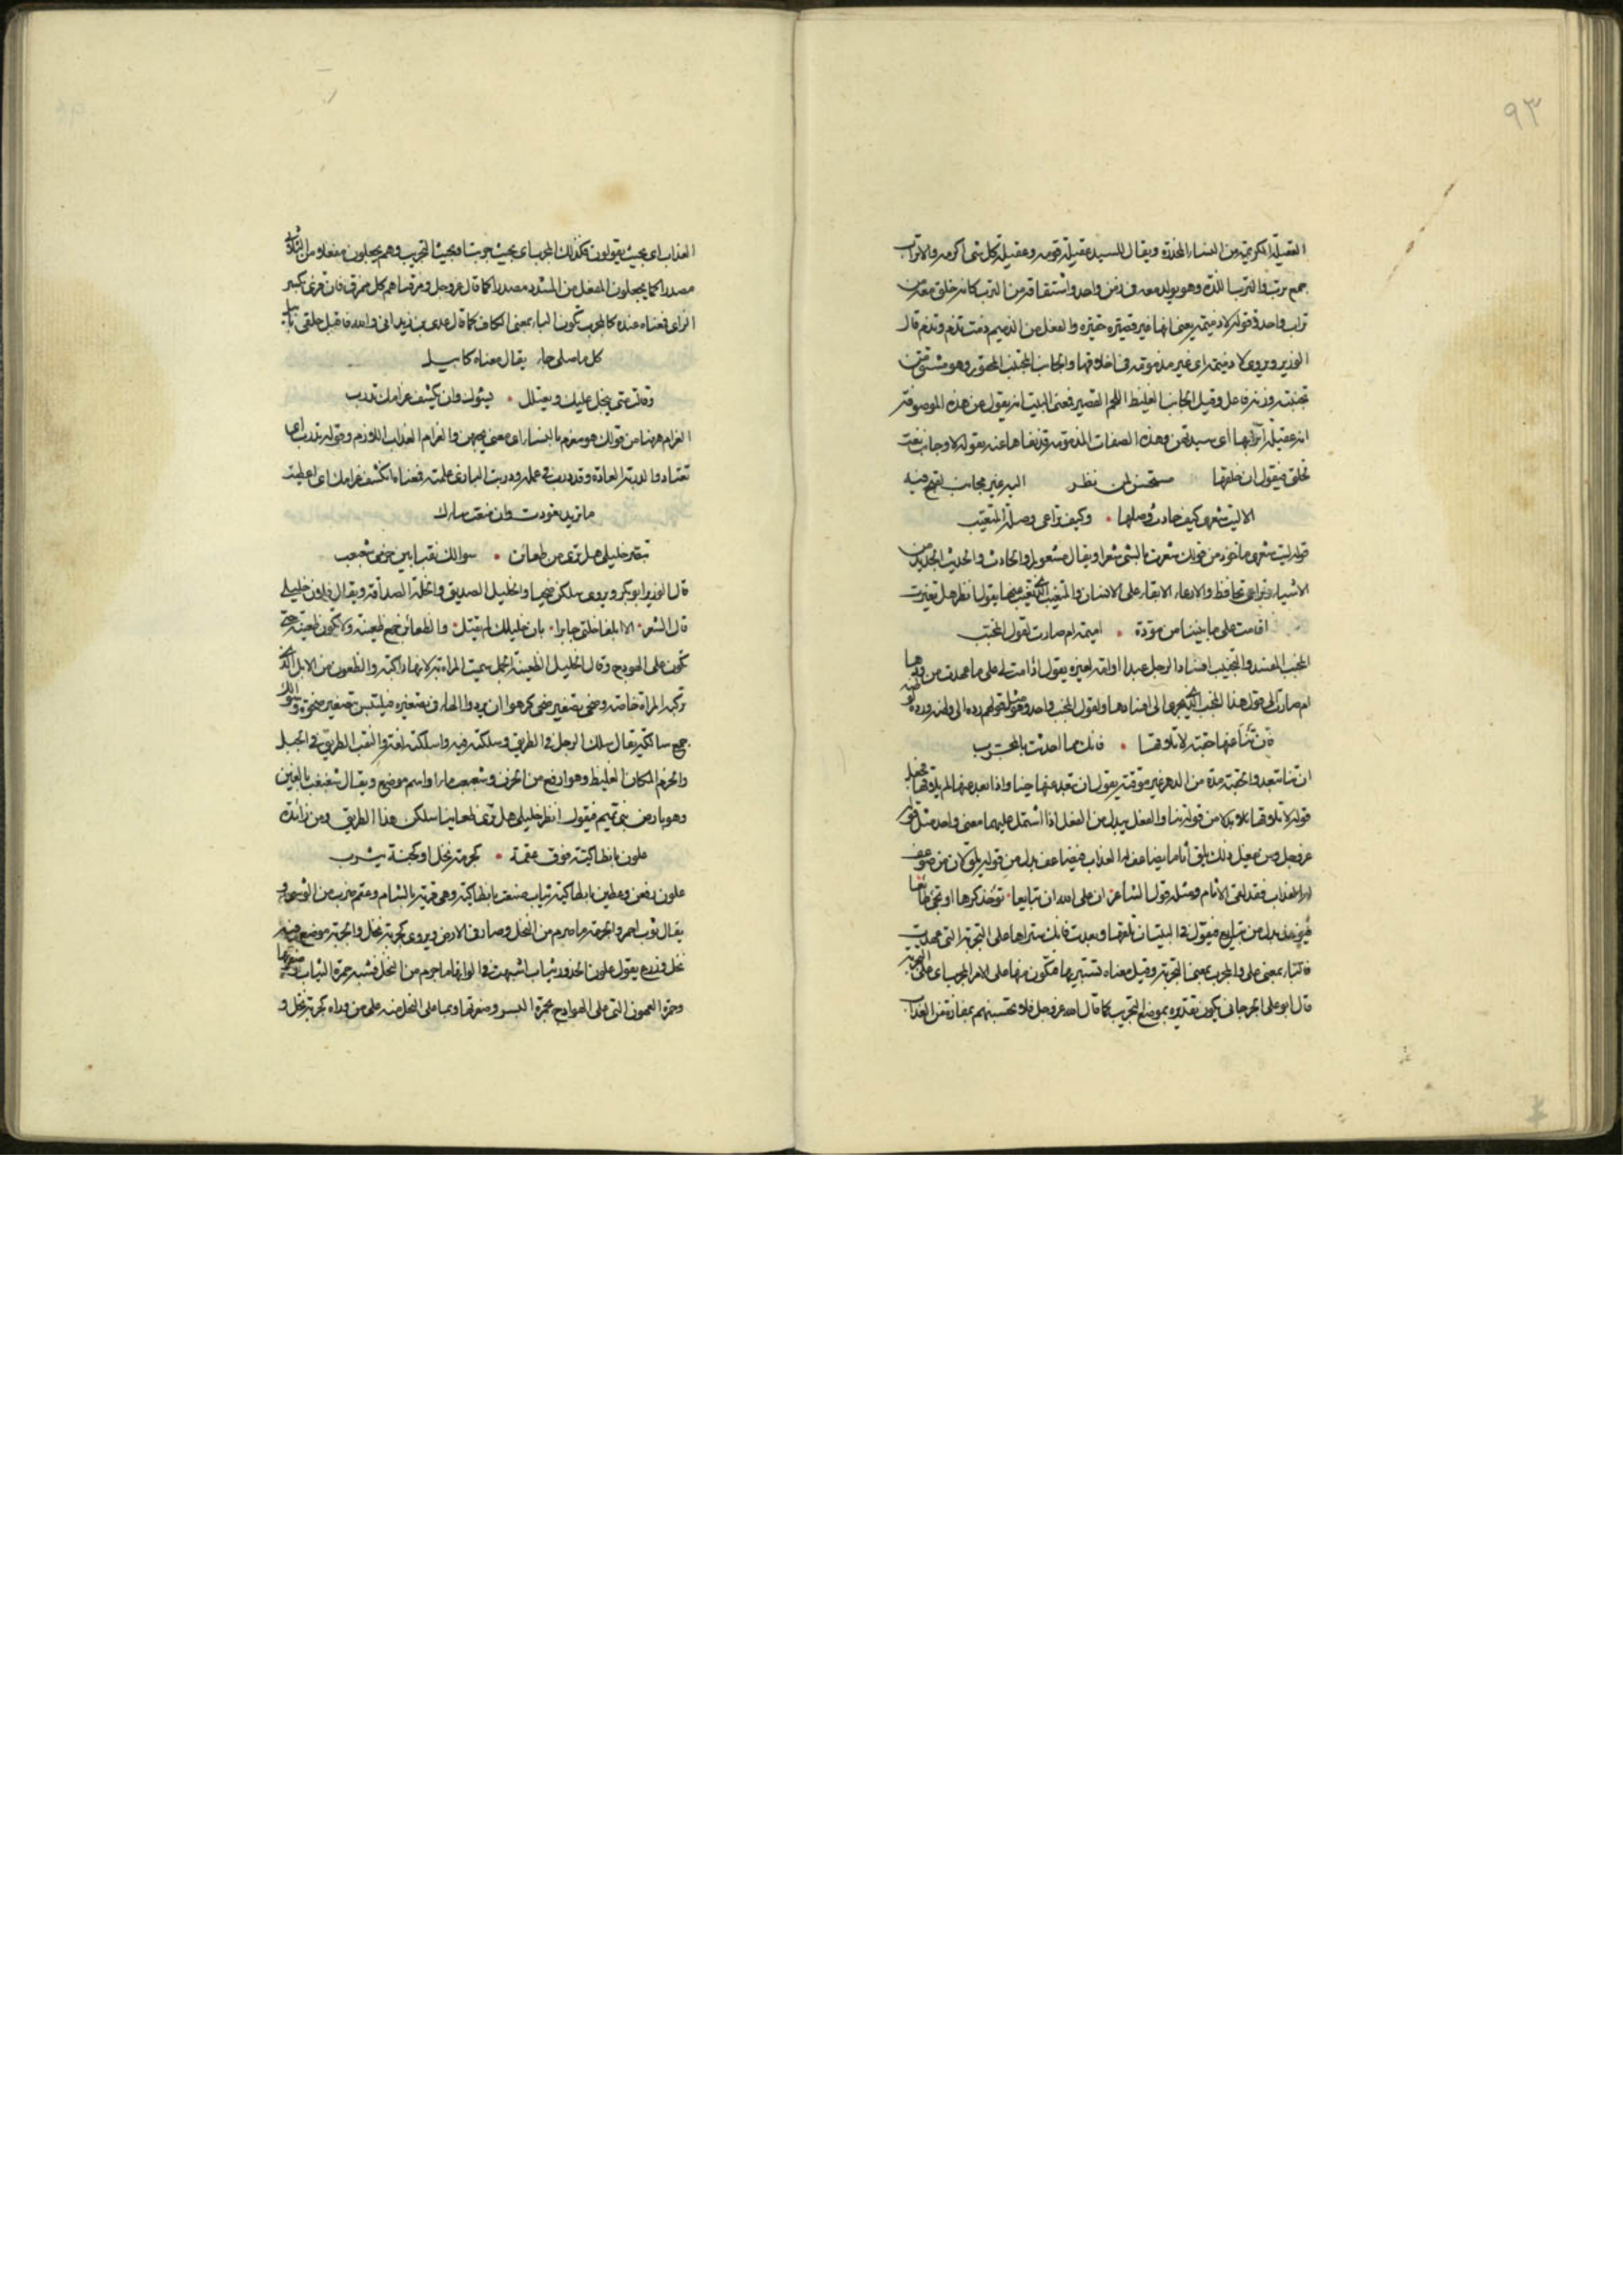 ٩٣
العقيلة الكريمة من النساء المخدرة ويقال للسيد عقيلة قومه وعقيلة كل شى اكرمه والاتراب
جمع ترب والترب اللدة وهو يولد معه فى زمن واحد واشتقاقه من الترب كانه خلق معه من
تراب واحد وقوله لا دميمة يعنى انها غير قصيرة حقيرة والفعل من الدميم دمت تدم وتدم قال
الوزير ويروى لا ذميمة اى غير مذمومة فى اخلاقها والجانب المجتنب المحقور وهو مشتق من
تجنبت وزنه فاعل وقيل الجانب الغليظ اللحم القصير فمعنى البيت انه يقول عن هذه الموصوفة
انه عقيلة اترابها اى سيدتهن وهذه الصفات المذمومة قد نفاها عنه بقوله لا وجانب نعت
تخلق فيقول ان خلقها مستحسن لمن نظر اليه غير مجانب لقبح فيه
الا ليت شعرى كيف حادث وصلها • وكيف تراعى وصلة المتغيب
قوله ليت شعرى ماخوذ من قولك شعرت بالشى شعرا ويقال مشعورا والحادث والحديث الجديد من
الاشياء وتراعى تحافظ والارعاء الابقاء على الانسان والمتغيب الذى تغيب عنها يقول انظر هل تغيرت
اقامت على ما بيننا من مودة • اميمة ام صارت لقول المخبب
المخبب المفسد والتخبيب افساد الرجل عبدا او امة لغيره يقول اذا مت لى على ما عهدت من ودها
ام صارت الى قول هذا المخبب الذى يجرى الى افسادها ولقول المخبب واحد وهو مثل قولهم رده الى وطنه ورده لوطنه
فان تنأ عنها حقبة لا تلاقها • فانك مما احدثت بالمجرب
ان تنأ تبعد والحقبة مدة من الدهر غير موقتة يقول ان تبعد عنها حينا واذا بعد عنها لم يلاقها فجعل
قوله لا تلاقها بدلا من قوله تنأ والفعل يبدل من الفعل اذا اشتمل عليهما معنى واحد مثل قوله
عز وجل ومن يفعل ذلك يلق أثاما يضاعف له العذاب فيضاعف بدل من قوله يلق لان من ضوعف
له العذاب فقد لقى الاثام ومثله قول الشاعر ان على الله ان تبايعا • توخذ كرها او تجى طائعا
فتوخذ بدل من تبايع فيقول فى البيت ان تلقها وبعدت فانك ستراها على التجربة التى عهدت
فالباء بمعنى على والمجرب بمعنى التجربة وقيل معناه تستبريها فتكون منها على الامر المجرب اى على التجربة
قال ابو على الجرجانى يكون تقديره بموضع التجريب كما قال الله عز وجل فلا تحسبنهم بمفازة من العذاب
العذاب اى بحيث يفوتون فكذلك المجرب اى بحيث جربت او بحيث التجريب وهم يجعلون مفعلا من الثلاثى
مصدرا كما يجعلون المفعل من المشدد مصدرا كما قال عز وجل ومزقناهم كل ممزق فان قرئ بكسر
الراى فمعناه عنده كالمجرب تكون الباء بمعنى الكاف كما قال عدى بن زيد انى والله فاقبل حلفتى بابيل
كل ما صلى جار يقال معناه كابيل
وقالت متى يبخل عليك ويعتلل • يسؤك وان يكشف غرامك تدرب
الغرام ههنا من قولك هو مغرم بالنساء اى معنى بهن والغرام العذاب اللازم وقوله تدرب اى
تعتاد والدربة العادة وقد درب فى عمله ودربت البازى علمته فمعناه ان كشف غرامك اى اعطيت
ما تريد تعودت وان منعت ساءك
تبصر خليلى هل ترى من ظعائن • سوالك نقبا بين حزمى شعبعب
قال الوزير ابو بكر ويروى سلكن ضحيا والخليل الصديق والخلة الصداقة ويقال فلان خليلى
قال الشعر • الا ابلغا خلتى جابرا • بان خليلك لم يقتل • والظعائن جمع ظعينة ولا تكون ظعينة حتى
تكون على الهودج وقال الخليل الظعينة الجمل سميت المراة به لانها راكبته والظعون من الابل الذى
تركبه المراة خاصة وضحى تصغير ضحى كرهوا ان يردوا الهاء فى تصغيره فيلتبس تصغير ضحوة وسوالك
جمع سالكة يقال سلك الرجل فى الطريق وسلكته فيه واسلكته لغة والنقب الطريق فى الجبل
والحزم المكان الغليظ وهو ارفع من الحزن وشعبعب ماء او اسم موضع ويقال شغبغب بالغين
وهو بارض بنى تميم فيقول انظر خليلى هل ترى ظعاينا سلكن هذا الطريق ومن زائدة
علون بانطاكية فوق عقمة • كجرمة نخل او كجنة يثرب
علون رفعن وغطين بانطاكية ثياب صنعت بانطاكية وهى قرية بالشام وعقم ضرب من الوشى و
يقال ثوب احمر والجرمة ما صرم من النخل وصار فى الارض ويروى كجربة نخل والجربة موضع فيه
نخل وزرع يقول علون الخدور بثياب اشبهت فى الوانها ما جرم من النخل فشبه حمرة الثياب وصفرتها
وحمرة العهون التى على الهوادج بحمرة البسر وصفرته او بما على النخل منه على من رواه كجربة نخل و